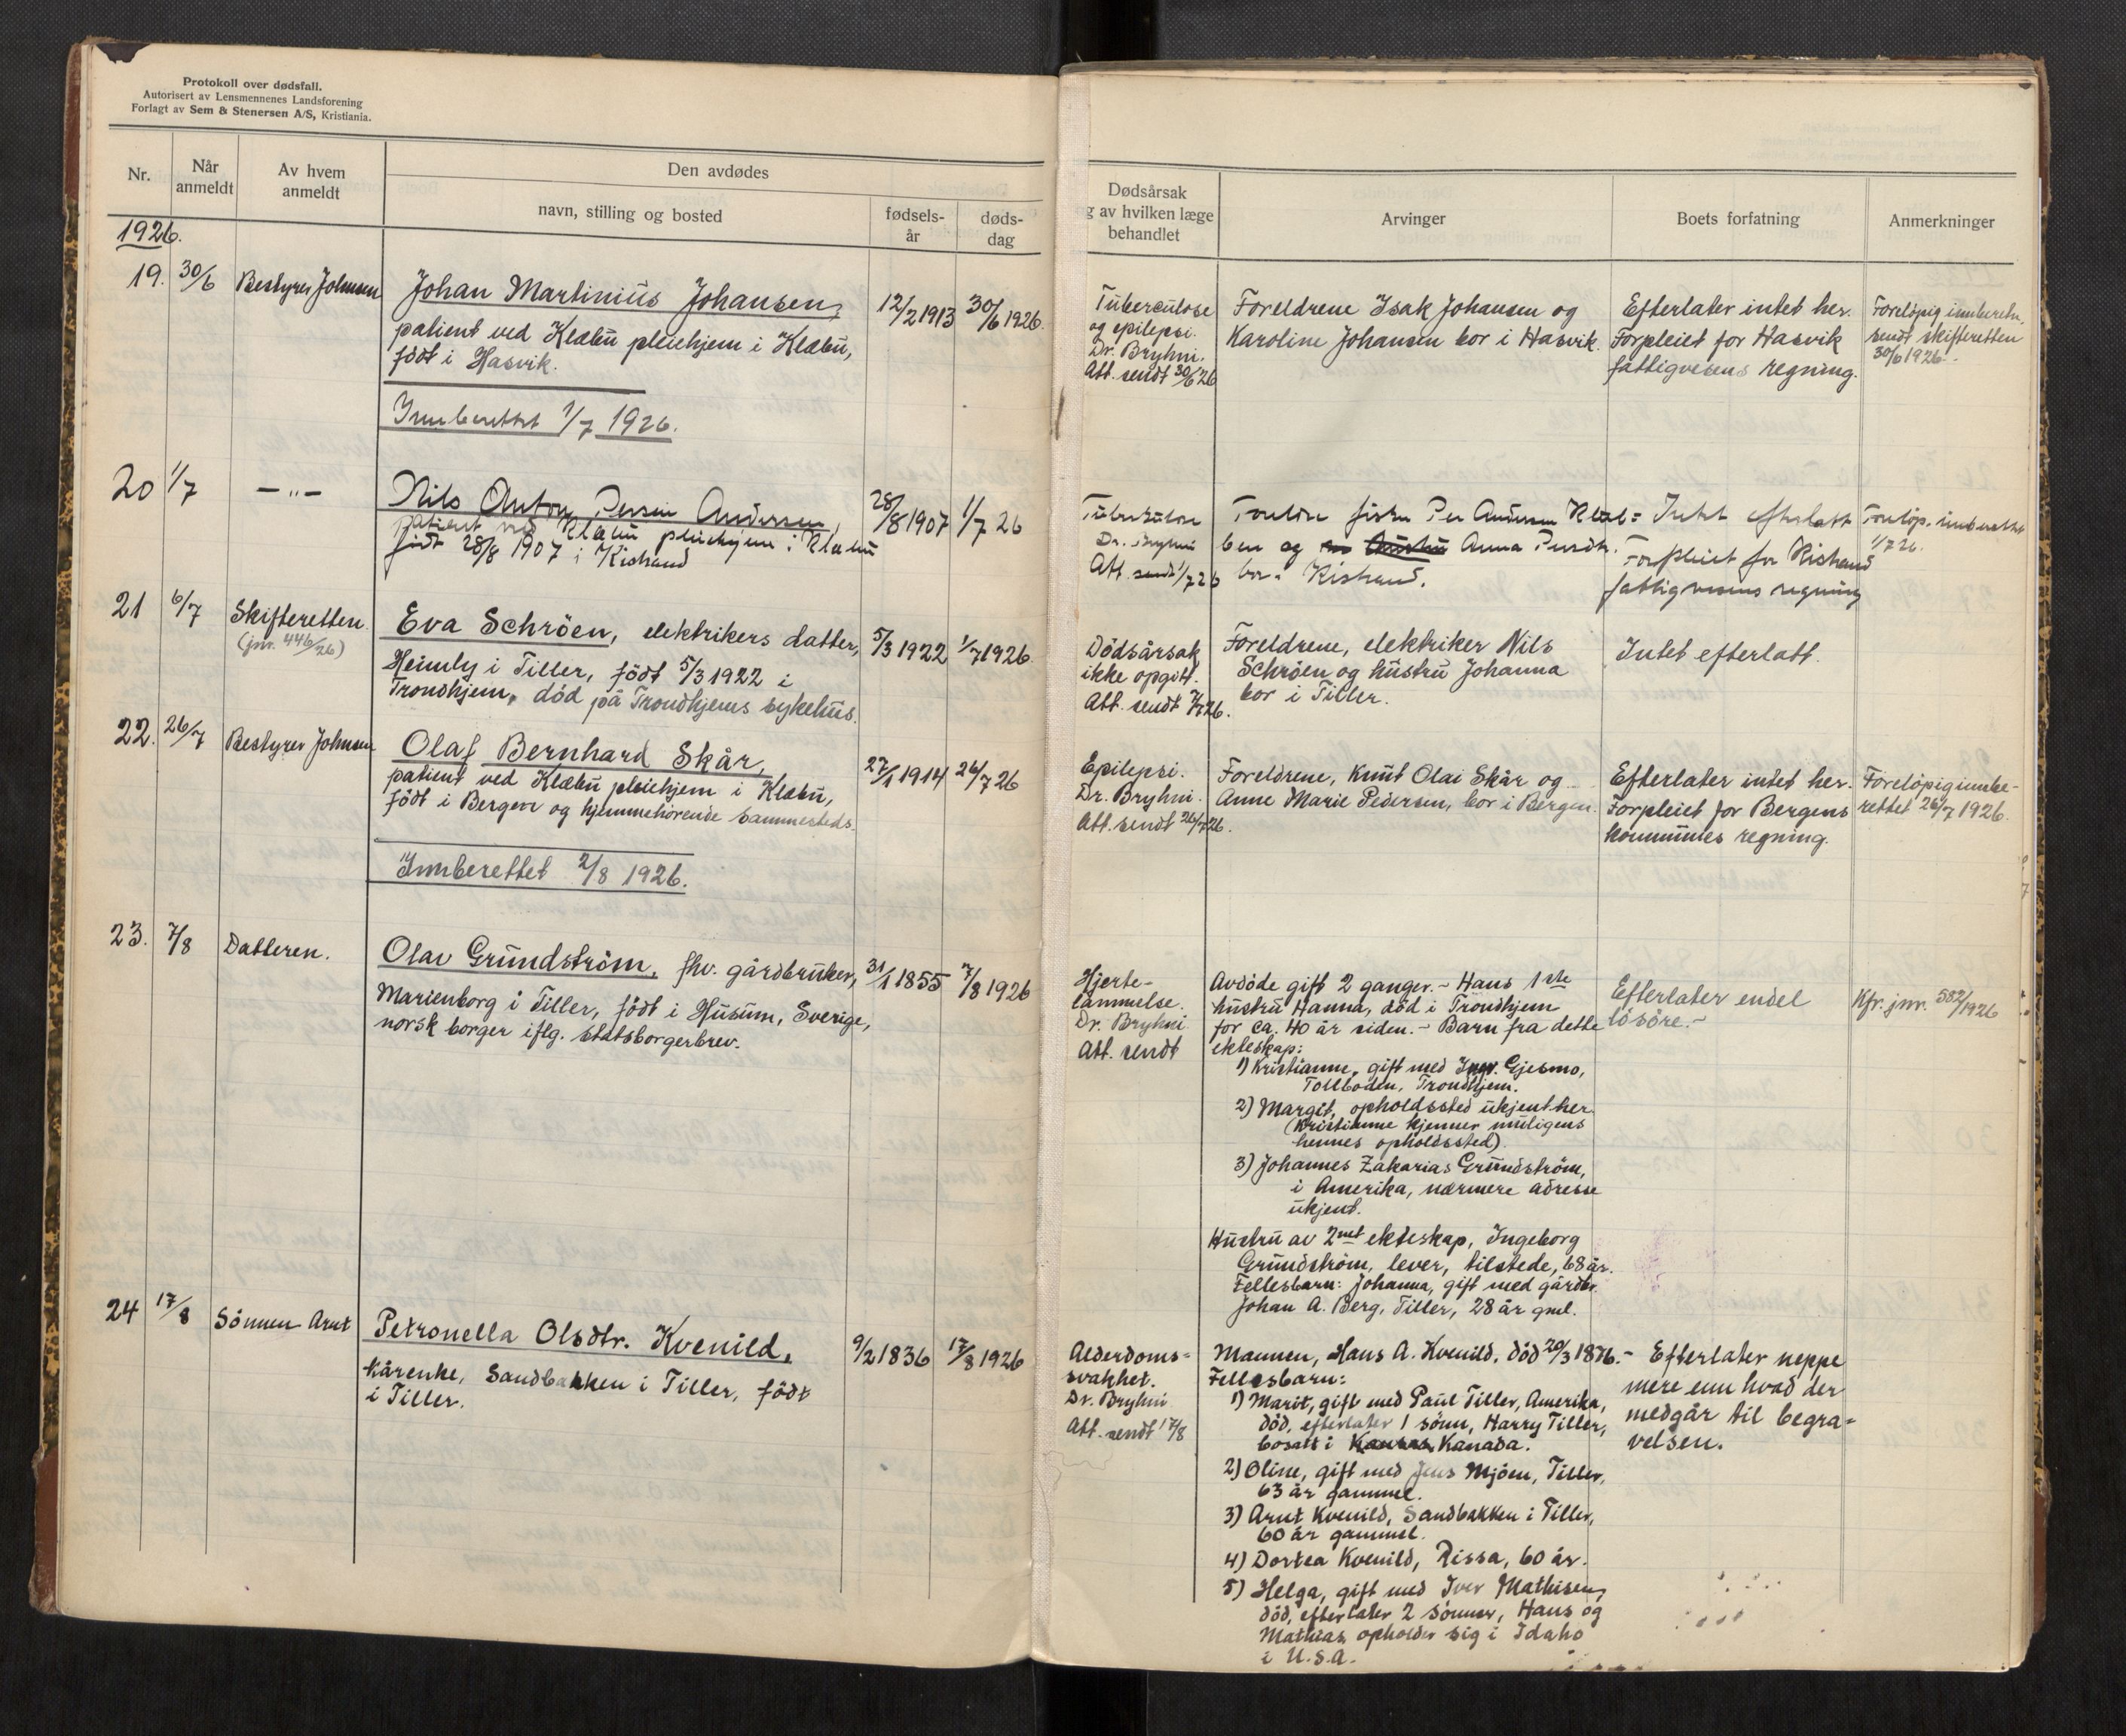 Protokoll over dødsfall.
Autorisert av Lensmennenes Landsforening
Forlagt av Sem & Stenersen A/S, Kristiania.
Nr.
Når anmeldt
Av hvem anmeldt
Den avdødes
navn, stilling og bosted
fødsels-
år
døds-
dag
Dødsårsak
g av hvilken læge
behandlet
Arvinger
Boets forfatning
Anmerkninger
1926.
19. 30/6 Bestyrer Johnsen
Johan Martinius Johansen,
patient ved Klæbu pleiehjem i Klæbu,
född i Hasvik.
12/2 1913
30/6 1926.
Tuberculose
og epilepsi.
Dr. Bryhni.
Att. sendt 30/6 26
Foreldrene Isak Johansen og
Karoline Johansen bor i Hasvik.
Efterlater intet her.
Forpleiet for Hasvik
fattigvesens regning.
Foreløpig innberetn.
sendt skifteretten
30/6 1926.
Innberettet 1/7 1926.
20 1/7 — " —
Nils Anton Persen Andersen,
patient ved Klæbu pleiehjem i Klæbu
født 28/8 1907 i Kistrand
28/8 1907
1/7 26
Tuberkulose
Dr. Bryhni
Att. sendt 1/7 26
Foreldre fisker Per Andersen
og Anna Persdtr.
bor i Kistrand.
Intet efterlatt
Forpleiet for Kistrand
fattigvesens regning
Foreløp. innberettet
1/7 26.
21 6/7 Skifteretten
(jnr. 446/26)
Eva Schrøen, elektrikers datter,
Heimly i Tiller, født 5/3 1922 i
Trondhjem, död på Trondhjems sykehus.
5/3 1922
1/7 1926.
Dödsårsak
ikke opgitt.
Att. sendt 7/7 26.
Foreldrene, elektriker Nils
Schrøen og hustru Johanna
bor i Tiller.
Intet efterlatt.
22. 26/7 Bestyrer Johnsen
Olaf Bernhard Skår,
patient ved Klæbu pleiehjem i Klæbu,
født i Bergen og hjemmehörende sammesteds.
27/1 1914
26/7 26
Epilepsi.
Dr. Bryhni.
Att. sendt 26/7 26.
Foreldrene, Knut Olai Skår og
Anne Marie Pedersen, bor i Bergen.
Efterlater intet her.
Forpleiet for Bergens
kommunes regning.
Foreløpig innbe-
rettet 26/7 1926.
Innberettet 2/8 1926.
23. 7/8 Datteren.
Olav Grundström, fhv. gårdbruker,
Marienborg i Tiller, født i Husum, Sverige,
norsk borger iflg. statsborgerbrev.
31/1 1855
7/8 1926
Hjerte-
lammelse.
Dr. Bryhni
Att. sendt
Avdøde gift 2 ganger. - Hans 1ste
hustru Hanna, död i Trondhjem
for ca. 40 år siden. - Barn fra dette
ekteskap:
1) Kristianne, gift med Gjesmo,
Tollboden, Trondhjem.
2) Margit, opholdssted ukjent her.
(Kristianne kjenner muligens
hennes opholdssted).
3) Johannes Zakarias Grundström,
i Amerika, nærmere adresse
ukjent.
Hustru av 2net ekteskap, Ingeborg
Grundström, lever, tilstede, 68 år.
Fellesbarn: Johanna, gift med gårdbr.
Johan A. Berg, Tiller, 28 år gml.
Efterlater endel
lösöre.-
Kfr. jnr. 582/1926
24 17/8 Sönnen Arnt
Petronella Olsdtr. Kvenild,
kårenke, Sandbakken i Tiller, födt
i Tiller.
9/2 1836
17/8 1926
Alderdoms-
svakhet.
Dr. Bryhni
Att. sendt 17/8
Mannen, Hans A. Kvenild, död 20/3 1876.-
Fellesbarn:
1) Marit, gift med Paul Tiller, Amerika,
död, efterlater 1 sönn, Harry Tiller,
bosatt i Kansas Kanada.
2) Oline, gift med Jens Mjöen, Tiller,
63 år gammel.
3) Arnt Kvenild, Sandbakken i Tiller,
60 år gammel.
4) Dortea Kvenild, Rissa, 60 år.
5) Helga, gift med Iver Mathisen,
död, efterlater 2 sönner, Hans og
Mathias, opholder sig i Idaho
i U.S.A.
Efterlater neppe
mere enn hvad der
medgår til begra-
velsen.